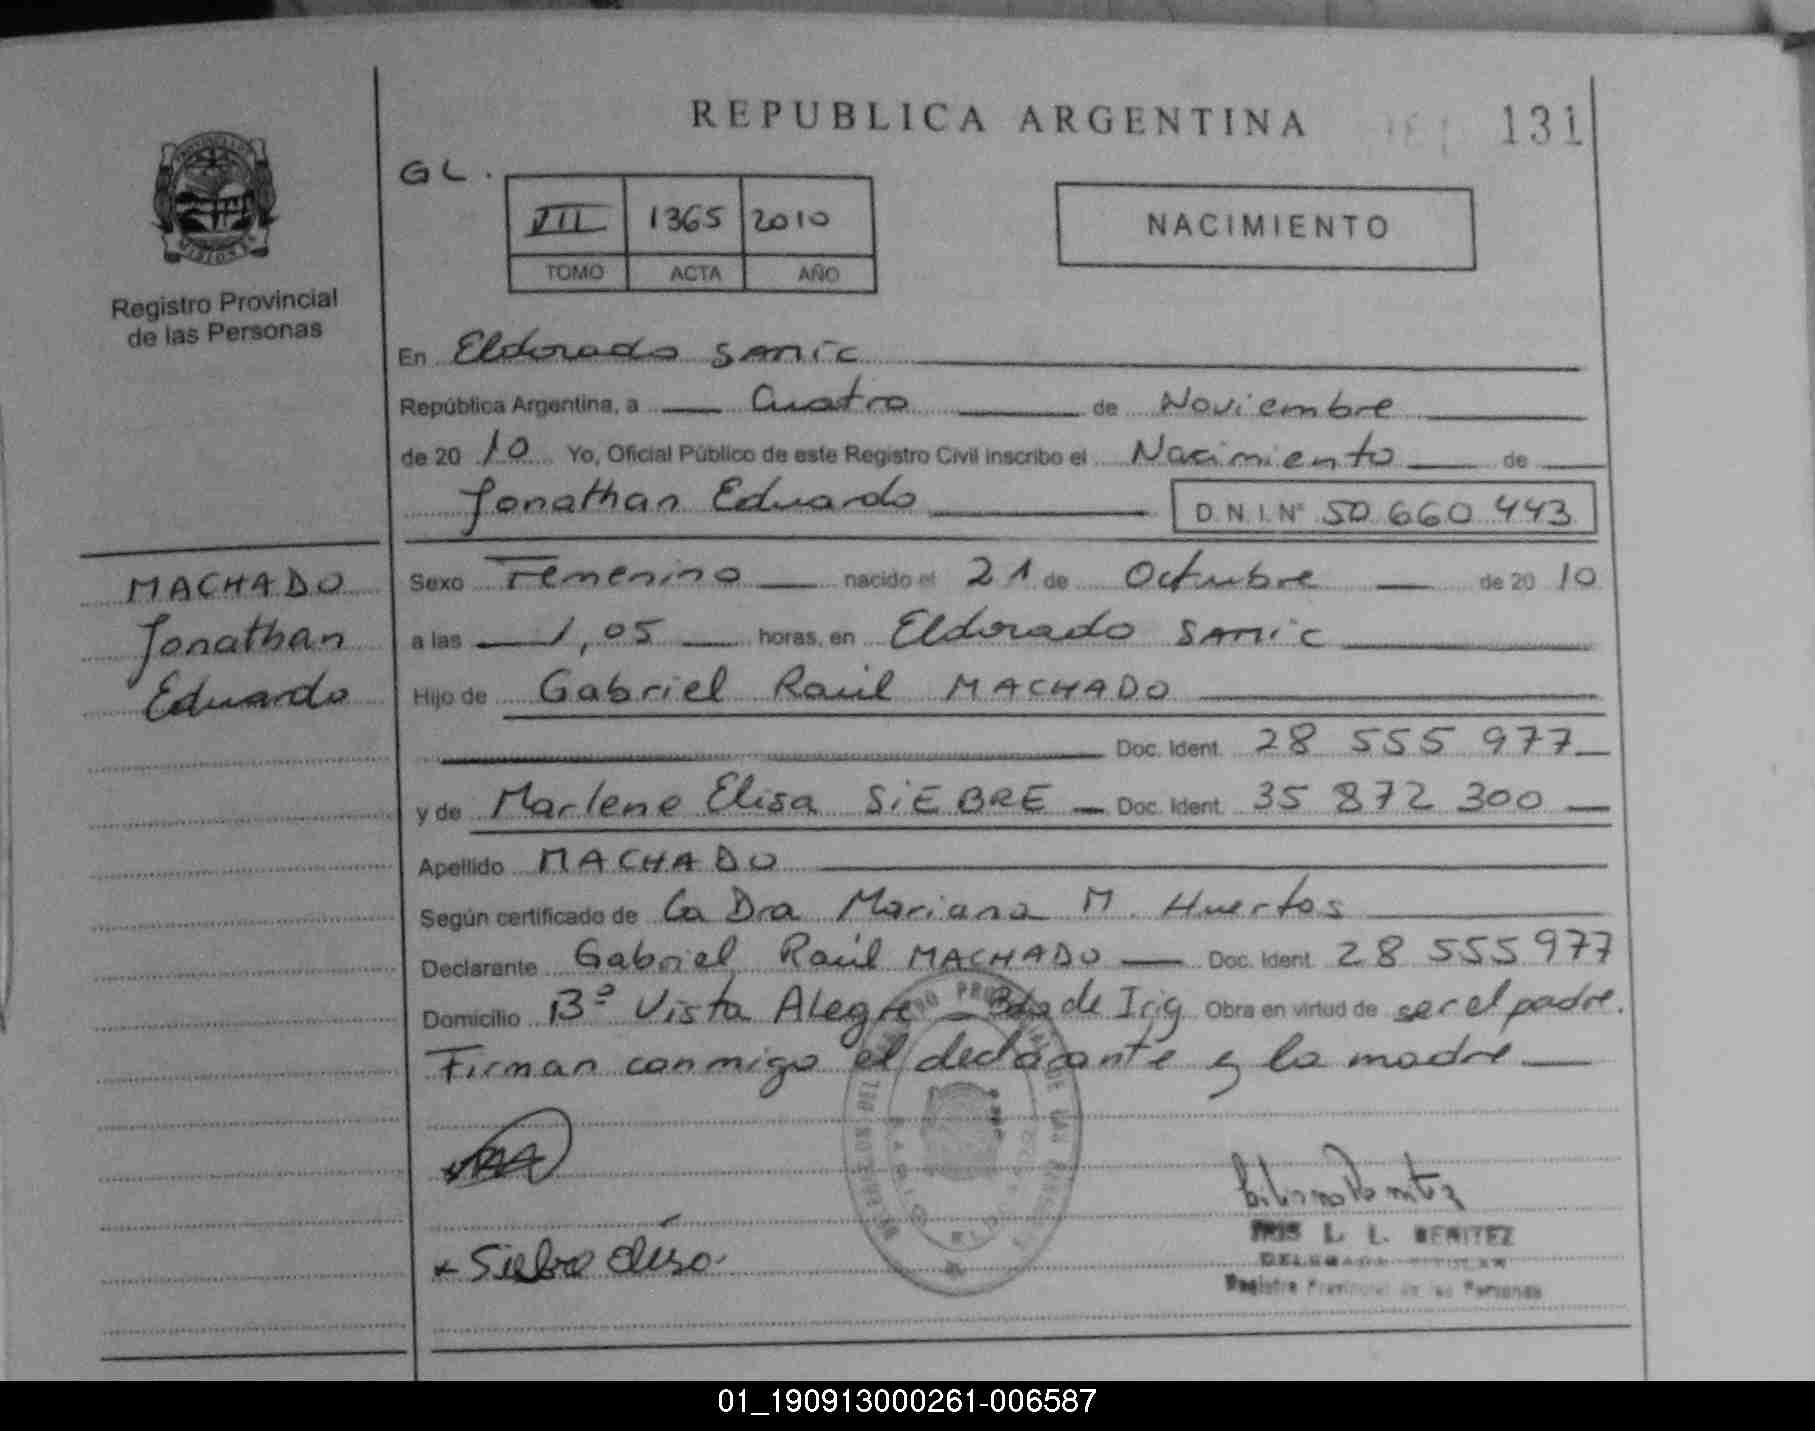 REPUBLICA ARGENTINA
131
GL.
VII 1365 2010
TOMO ACTA AÑO
NACIMIENTO
Registro Provincial
de las Personas
En Eldorado SAMIC
República Argentina, a Cuatro de Noviembre
de 20 10 Yo, Oficial Público de este Registro Civil inscribo el Nacimiento de
Jonathan Eduardo D.N.I.Nº 50 660 443
MACHADO
Jonathan
Eduardo
Sexo Femenino nacido el 21 de Octubre de 20 10
a las 1,05 horas, en Eldorado SAMIC
Hijo de Gabriel Raúl MACHADO
Doc. Ident. 28 555 977
y de Marlene Elisa SiEBRE Doc. Ident. 35 872 300
Apellido MACHADO
Según certificado de La Dra Mariana M. Huertas
Declarante Gabriel Raúl MACHADO Doc. Ident. 28 555 977
Domicilio Bº Vista Alegre Bdo de Irig Obra en virtud de ser el padre.
Firman conmigo el declarante y la madre
Siebre Elisa
IRIS L. L. BENITEZ
DELEGADA TITULAR
Registro Provincial de las Personas
01_190913000261-006587